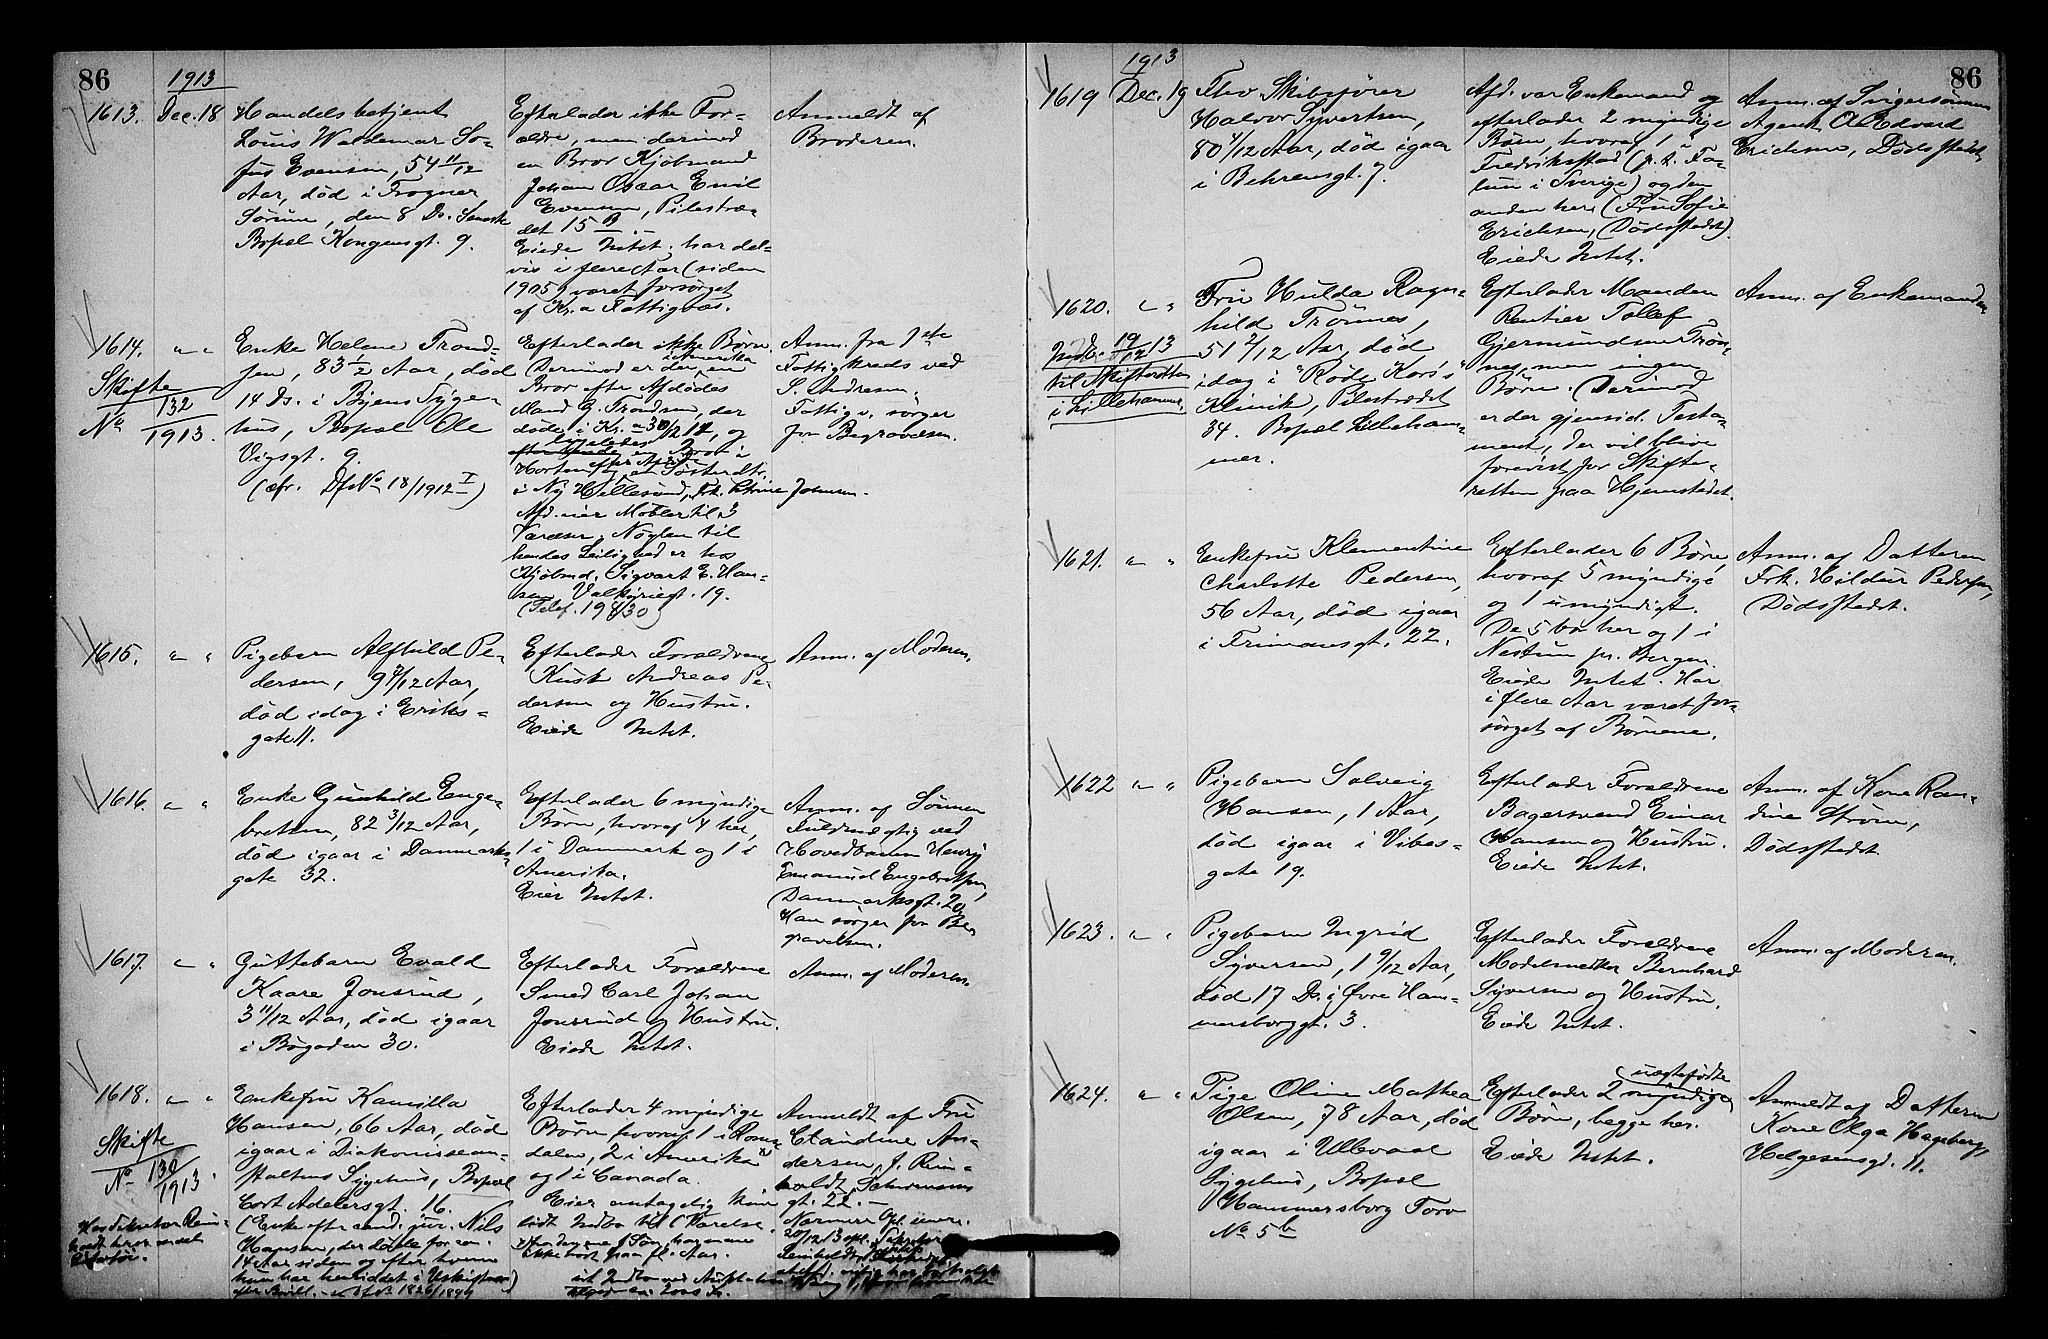 86
1913
1613. Dec. 18
Handelsbetjent
Louis Waldemar So-
fus Evensen, 54 11/12
Aar, død i Frogner
Sørum, den 8 Ds.
Bopæl Kongensgt. 9.
Efterlader ikke For-
ældre, men derimod
en Bror Kjøbmand
Johan Oscar Emil
Evensen, Pilestræ-
det 15 B.
Eiede Intet, har del-
vis i flere Aar (siden
1905) været forsørget
af Kr.a Fattigvæs.
Anmeldt af
Broderen.
1614. " "
Skifte
No 132/1913.
Enke Helene Trond-
sen, 83 1/2 Aar, død
14 Ds. i Byens Syge-
hus, Bopæl Ole
Vigsgt. 9.
(cfr. Df No 18/1912 I)
Efterlader ikke Børn.
Derimod er der en i Amerika
Bror efter Afdødes
Mand G. Trondsen, der
døde i Kr.a 30/12 11, og
ligeledes en Bror i
Horten efter Afd. og en Søsterdtr.
i Ny Hellesund, Frk. Johnsen.
Afd. eier Møbler til 3
Værelser. Nøglen til
hendes Leilighed er hos
Kjøbmd. Sigvart E. Han-
sen Valkyriegt. 19.
(Telef. 19830)
Anm. fra 7de
Fattigkreds ved
S. Andresen,
Fattigv. sørger
for Begravelsen.
1615. " "
Pigebarn Alfhild Pe-
dersen, 9 7/12 Aar,
død idag i Eriks-
gate 11.
Efterlader Forældrene
Kusk Andreas Pe-
dersen og Hustru.
Eiede Intet.
Anm. af Moderen.
1616. " "
Enke Gunhild Enge-
bretsen, 82 3/12 Aar,
død igaar i Danmarks-
gate 32.
Efterlader 6 myndige
Børn, hvoraf 4 her,
1 i Danmark og 1 i
Amerika.
Eier Intet.
Anm. af Sønnen
Fuldmægtig ved
Hovedbanen Henrij
Emanuel Engebretsen,
Danmarksgt. 20
Han sørger for Be-
gravelsen.
1617. " "
Guttebarn Evald
Kaare Jonsrud,
3 11/12 Aar, død igaar
i Bøgaden 30.
Efterlader Forældrene
Smed Carl Johan
Jonsrud og Hustru.
Eiede Intet.
Anm. af Moderen.
1618. " "
Skifte
No 130/1913.
Enkefru Kamilla
Hansen, 66 Aar, død
igaar i Diakonissean-
staltens Sygehus, Bopæl
Cort Adelersgt. 16.
(Enke efter cand. jur. Nils
Hansen, der døde for ca.
14 Aar siden og efter hvem
hun har hensiddet i Uskiftet Bo)
Efterlader 4 myndige
Børn hvoraf 1 i Roms-
dalen, 2 i Amerika
og 1 i Canada.
Eier antagelig kun
lidt Indbo til 1 Værelse.
ikke hørt fra fl. Aar.
Anmeldt af Fru
Claudine An-
dersen, J. Rein-
holdt,
gt. 22.
86
1913
1619 Dec. 19
Fhv Skibsfører
Halvor Syvertsen,
80 4/12 Aar, død igaar
i Behrensgt. 7.
Afd. var Enkemand og
efterlader 2 myndige
Børn, hvoraf 1 i
Fredriksstad (p.t. Fa-
lun i Sverige) og den
anden her (Fru Sofie
Erichsen, (Dødsstedet).
Eiede Intet.
Anm. af Svigersønnen
Agent A Edvard
Erichsen, Dødsstedet
1620. " "
Indb. 19/12 13
til Skifteretten
i Lillehammer.
Fru Hulda Ragn-
hild Trønnes,
51 2/12 Aar, død
idag i "Røde Kors"
Klinik, Pilestrædet
34. Bopæl Lilleham-
mer.
Efterlader Manden
Rentier Tollef
Gjermundsen Trøn-
nes, men ingen
Børn. (Derimod
er der gjensid. Testa-
ment, der vil blive
forevist for Skifte-
retten paa Hjemstedet.
Anm. af Enkemanden
1621. " "
Enkefru Klementine
Charlotte Pedersen,
56 Aar, død igaar
i Frimansgt. 22.
Efterlader 6 Børn,
hvoraf 5 myndige
og 1 umyndigt.
De 5 bo her og 1 i
Nestun pr. Bergen.
Eiede Intet. Har
i flere Aar været for-
sørget af Børnene.
Anm. af Datteren
Frk. Hildur Pedersen,
Dødsstedet.
1622 " "
Pigebarn Solveig
Hansen, 1 Aar,
død igaar i Vibes-
gate 19.
Efterlader Forældrene
Bagersvend Einar
Hansen og Hustru.
Eiede Intet.
Anm. af Kone Ran-
dine Strøm,
Dødsstedet.
1623. " "
Pigebarn Ingrid
Syversen, 1 9/12 Aar,
død 17 Ds. i Øvre Ham-
mersborggt. 3.
Efterlader Forældrene
Modelsnedker Bernhard
Syversen og Hustru.
Eiede Intet.
Anm. af Moderen.
1624. " "
Pige Oline Mathea
Olsen, 78 Aar, død
igaar i Ullevaal
Sygehus, Bopæl
Hammersborg Torv
No 5 b
Efterlader 2 uægtefødte myndige
Børn, begge her.
Eiede Intet.
Anmeldt af Datteren
Kone Olga Hageberg,
Helgesensgd. 11.